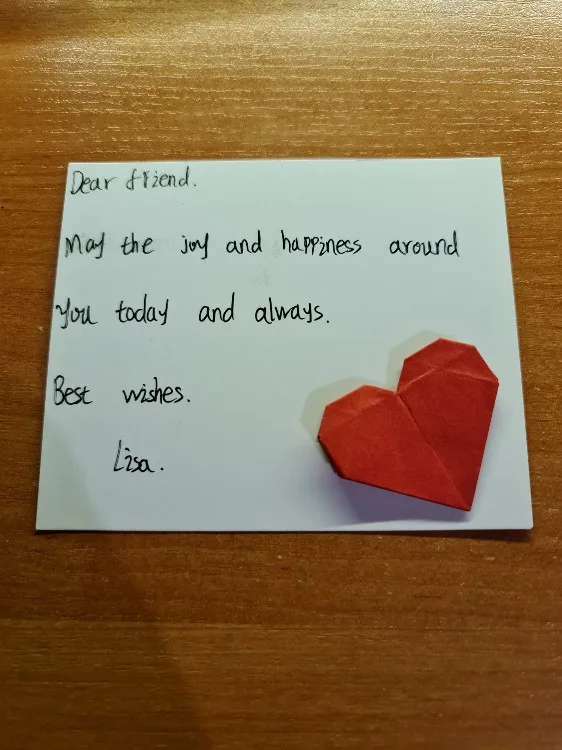 Dear friend.
May the joy and happiness around
you today and always.
Best wishes.
Lisa.